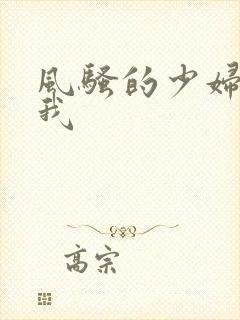 風騷的少婦
我
高宗